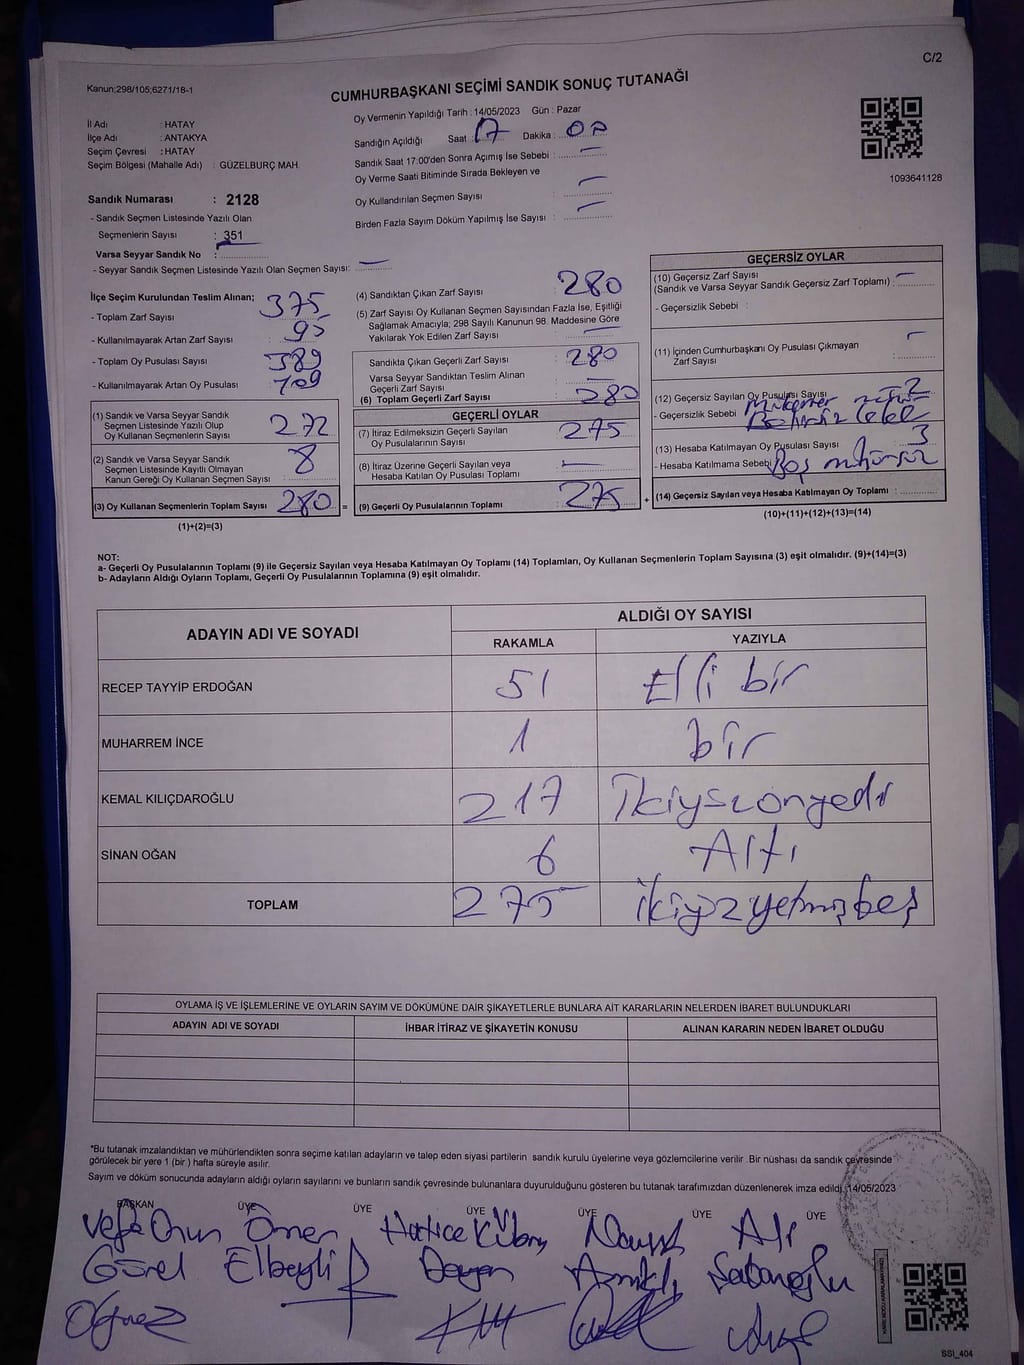 C/2
Kanun:298/105;6271/18-1
CUMHURBAŞKANI SEÇİMİ SANDIK SONUÇ TUTANAĞI
Oy Vermenin Yapıldığı Tarih : 14/05/2023 Gün : Pazar
İl Adı : HATAY
İlçe Adı : ANTAKYA
Seçim Çevresi : HATAY
Seçim Bölgesi (Mahalle Adı) : GÜZELBURÇ MAH.
Sandığın Açıldığı Saat : 17 Dakika : 00
Sandık Saat 17:00'den Sonra Açımış İse Sebebi : –
Oy Verme Saati Bitiminde Sırada Bekleyen ve
Oy Kullandırılan Seçmen Sayısı : –
Birden Fazla Sayım Döküm Yapılmış İse Sayısı : –
1093641128
Sandık Numarası : 2128
- Sandık Seçmen Listesinde Yazılı Olan
Seçmenlerin Sayısı : 351
Varsa Seyyar Sandık No :
- Seyyar Sandık Seçmen Listesinde Yazılı Olan Seçmen Sayısı: –
İlçe Seçim Kurulundan Teslim Alınan;
- Toplam Zarf Sayısı 375
- Kullanılmayarak Artan Zarf Sayısı 95
- Toplam Oy Pusulası Sayısı 389
- Kullanılmayarak Artan Oy Pusulası 109
(1) Sandık ve Varsa Seyyar Sandık
Seçmen Listesinde Yazılı Olup
Oy Kullanan Seçmenlerin Sayısı 272
(2) Sandık ve Varsa Seyyar Sandık
Seçmen Listesinde Kayıtlı Olmayan
Kanun Gereği Oy Kullanan Seçmen Sayısı : 8
(3) Oy Kullanan Seçmenlerin Toplam Sayısı 280 =
(1)+(2)=(3)
(4) Sandıktan Çıkan Zarf Sayısı 280
(5) Zarf Sayısı Oy Kullanan Seçmen Sayısından Fazla İse, Eşitliği
Sağlamak Amacıyla; 298 Sayılı Kanunun 98. Maddesine Göre
Yakılarak Yok Edilen Zarf Sayısı : –
Sandıkta Çıkan Geçerli Zarf Sayısı : 280
Varsa Seyyar Sandıktan Teslim Alınan
Geçerli Zarf Sayısı : –
(6) Toplam Geçerli Zarf Sayısı : 280
GEÇERLİ OYLAR
(7) İtiraz Edilmeksizin Geçerli Sayılan
Oy Pusulalarının Sayısı : 275
(8) İtiraz Üzerine Geçerli Sayılan veya
Hesaba Katılan Oy Pusulası Toplamı : –
(9) Geçerli Oy Pusulalarının Toplamı : 275 +
GEÇERSİZ OYLAR
(10) Geçersiz Zarf Sayısı
(Sandık ve Varsa Seyyar Sandık Geçersiz Zarf Toplamı) : –
- Geçersizlik Sebebi :
(11) İçinden Cumhurbaşkanı Oy Pusulası Çıkmayan
Zarf Sayısı : –
(12) Geçersiz Sayılan Oy Pusulası Sayısı : 2
- Geçersizlik Sebebi
(13) Hesaba Katılmayan Oy Pusulası Sayısı : 3
- Hesaba Katılmama Sebebi Boş mühürsüz
(14) Geçersiz Sayılan veya Hesaba Katılmayan Oy Toplamı :
(10)+(11)+(12)+(13)=(14)
NOT:
a- Geçerli Oy Pusulalarının Toplamı (9) ile Geçersiz Sayılan veya Hesaba Katılmayan Oy Toplamı (14) Toplamları, Oy Kullanan Seçmenlerin Toplam Sayısına (3) eşit olmalıdır. (9)+(14)=(3)
b- Adayların Aldığı Oyların Toplamı, Geçerli Oy Pusulalarının Toplamına (9) eşit olmalıdır.
ADAYIN ADI VE SOYADI ALDIĞI OY SAYISI
RAKAMLA YAZIYLA
RECEP TAYYİP ERDOĞAN 51 Elli bir
MUHARREM İNCE 1 bir
KEMAL KILIÇDAROĞLU 217 İkiyüzonyedi
SİNAN OĞAN 6 Altı
TOPLAM 275 ikiyüzyetmişbeş
OYLAMA İŞ VE İŞLEMLERİNE VE OYLARIN SAYIM VE DÖKÜMÜNE DAİR ŞİKAYETLERLE BUNLARA AİT KARARLARIN NELERDEN İBARET BULUNDUKLARI
ADAYIN ADI VE SOYADI İHBAR İTİRAZ VE ŞİKAYETİN KONUSU ALINAN KARARIN NEDEN İBARET OLDUĞU
*Bu tutanak imzalandıktan ve mühürlendikten sonra seçime katılan adayların ve talep eden siyasi partilerin sandık kurulu üyelerine veya gözlemcilerine verilir. Bir nüshası da sandık çevresinde
görülecek bir yere 1 (bir) hafta süreyle asılır.
Sayım ve döküm sonucunda adayların aldığı oyların sayılarını ve bunların sandık çevresinde bulunanlara duyurulduğunu gösteren bu tutanak tarafımızdan düzenlenerek imza edildi. 14/05/2023
BAŞKAN ÜYE ÜYE ÜYE ÜYE ÜYE ÜYE
Vefa Onur Ömer Hatice Kübra Ali
Gürel Elbeyli Doğan Sabanoğlu
SSI_404